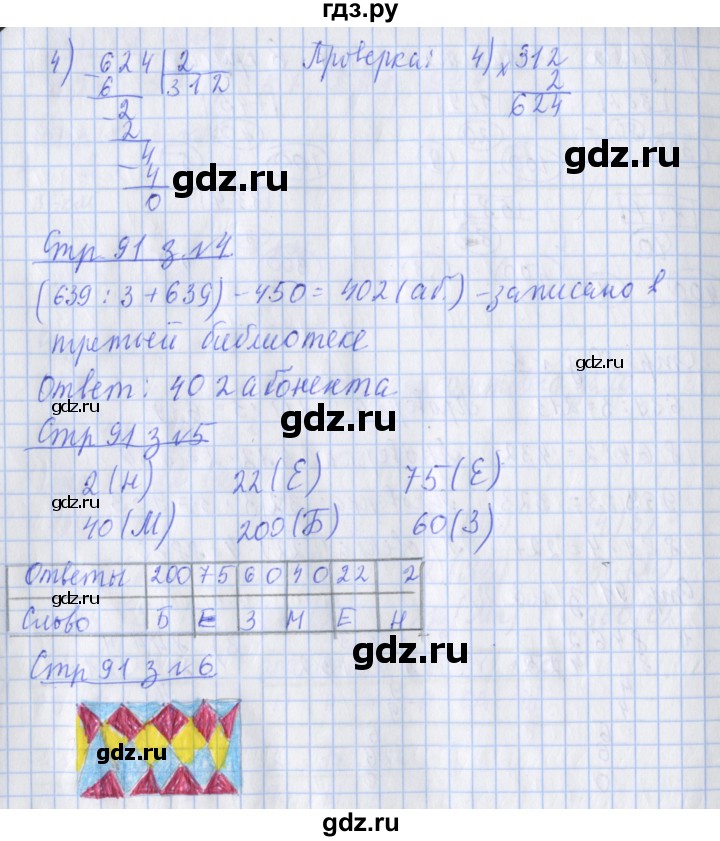 гдз.ру
4) 624 | 2   Проверка: 4) × 312
6   312   2
- 2   624
2
- 4
4
0
gdz.ru
gdz.ru
Стр 91 з №4
(639 : 3 + 639) - 450 = 402 (аб.) - записано в
третьей библиотеке
gdz.ru
Ответ: 402 абонента
gdz.ru
gdz.ru
Стр 91 з №5
2 (Н)   22 (Е)   75 (Е)
gdz.ru
gdz.ru
40 (М)   200 (Б)   60 (З)
Ответы 200 75 60 40 22 2
gdz.ru
Слово Б Е З М Е Н
gdz.ru
Стр 91 з №6
gdz.ru
gdz.ru
gdz.ru